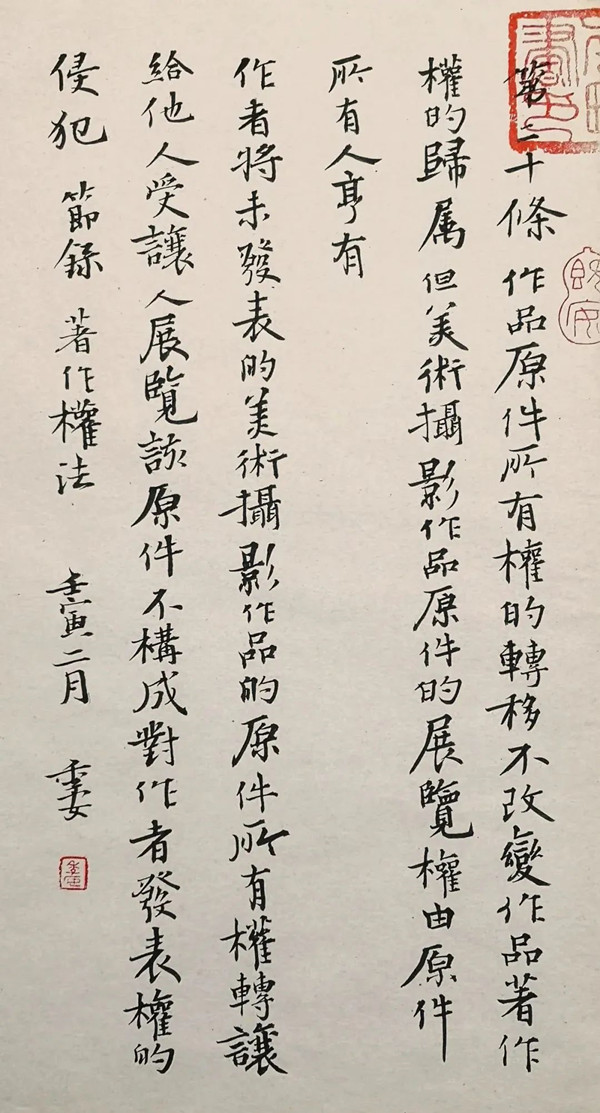 第二十條 作品原件所有權的轉移不改變作品著作
權的歸属但美術攝影作品原件的展覽權由原件
所有人享有
作者將未發表的美術攝影作品的原件所有權轉讓
給他人受讓人展覽該原件不構成對作者發表權的
侵犯 節録 著作權法 壬寅二月